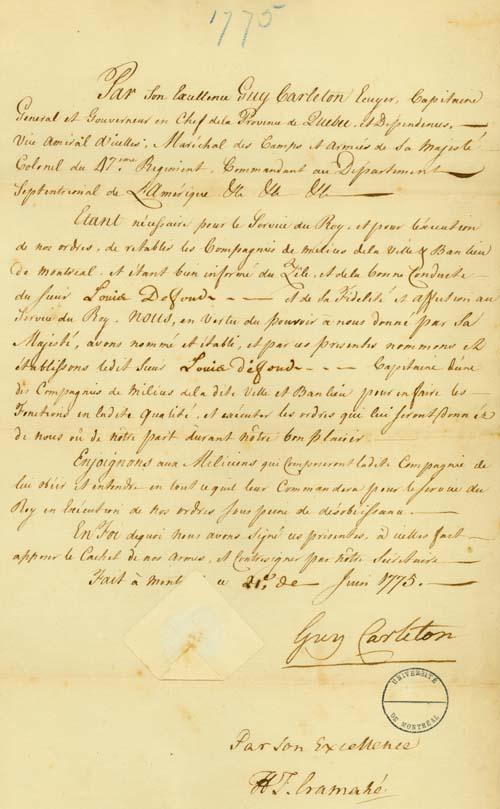 1775
Par Son Excellence Guy Carleton Ecuyer, Capitaine
General et Gouverneur en Chef de la Province de Quebec, Et Dependences,
Vice Amiral d'icelles, Maréchal des Camps et Armées de Sa Majesté
Colonel du 47eme Regiment, Commandant au Département
Septentrional de L'Amérique &c &c &c
Etant nécessaire pour le Service du Roy, et pour l'éxécution
de nos ordres, de retablir les Compagnies de milices de la Ville & Banlieu
de Montreal, et étant bien informé du Zèle, et de la bonne Conducte
du Sieur Louis Defond et de sa Fidelité et affection au
Service du Roy. Nous, en Vertu du pouvoir à nous donné par Sa
Majesté, avons nommé et établi, et par ces presentes nommons et
établissons ledit Sieur Louis Défond Capitaine d'une
des Compagnies de Milices de la dite Ville et Banlieu pour en faire les
Fonctions en ladite Qualité, et exécuter les ordres qui lui seront donnés
de nous où de nôtre part durant nôtre bon plaisir
Enjoignons aux Miliciens qui composeront ladite Compagnie de
lui obéir et entendre en tout ce qu'il leur Commandera pour le Service du
Roy en Exécution de nos ordres sous peine de désobeissance.
En Foi dequoi Nous avons Signé ces présentes, à icelles fait
apposer le Cachet de nos Armes, et Contresigner par nôtre Secrétaire
Fait à Mont ce 21e de Juin 1775.
Guy Carleton
UNIVERSITÉ
DE MONTRÉAL
Par Son Excellence
H T. Cramahé.